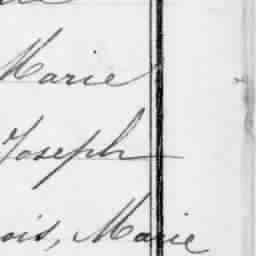 Marie
Joseph
ois, Marie